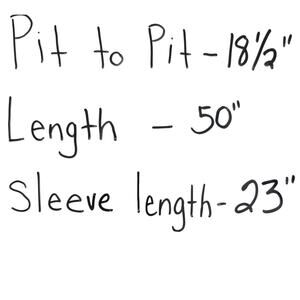 Pit to Pit - 18½"
Length - 50"
Sleeve length - 23"